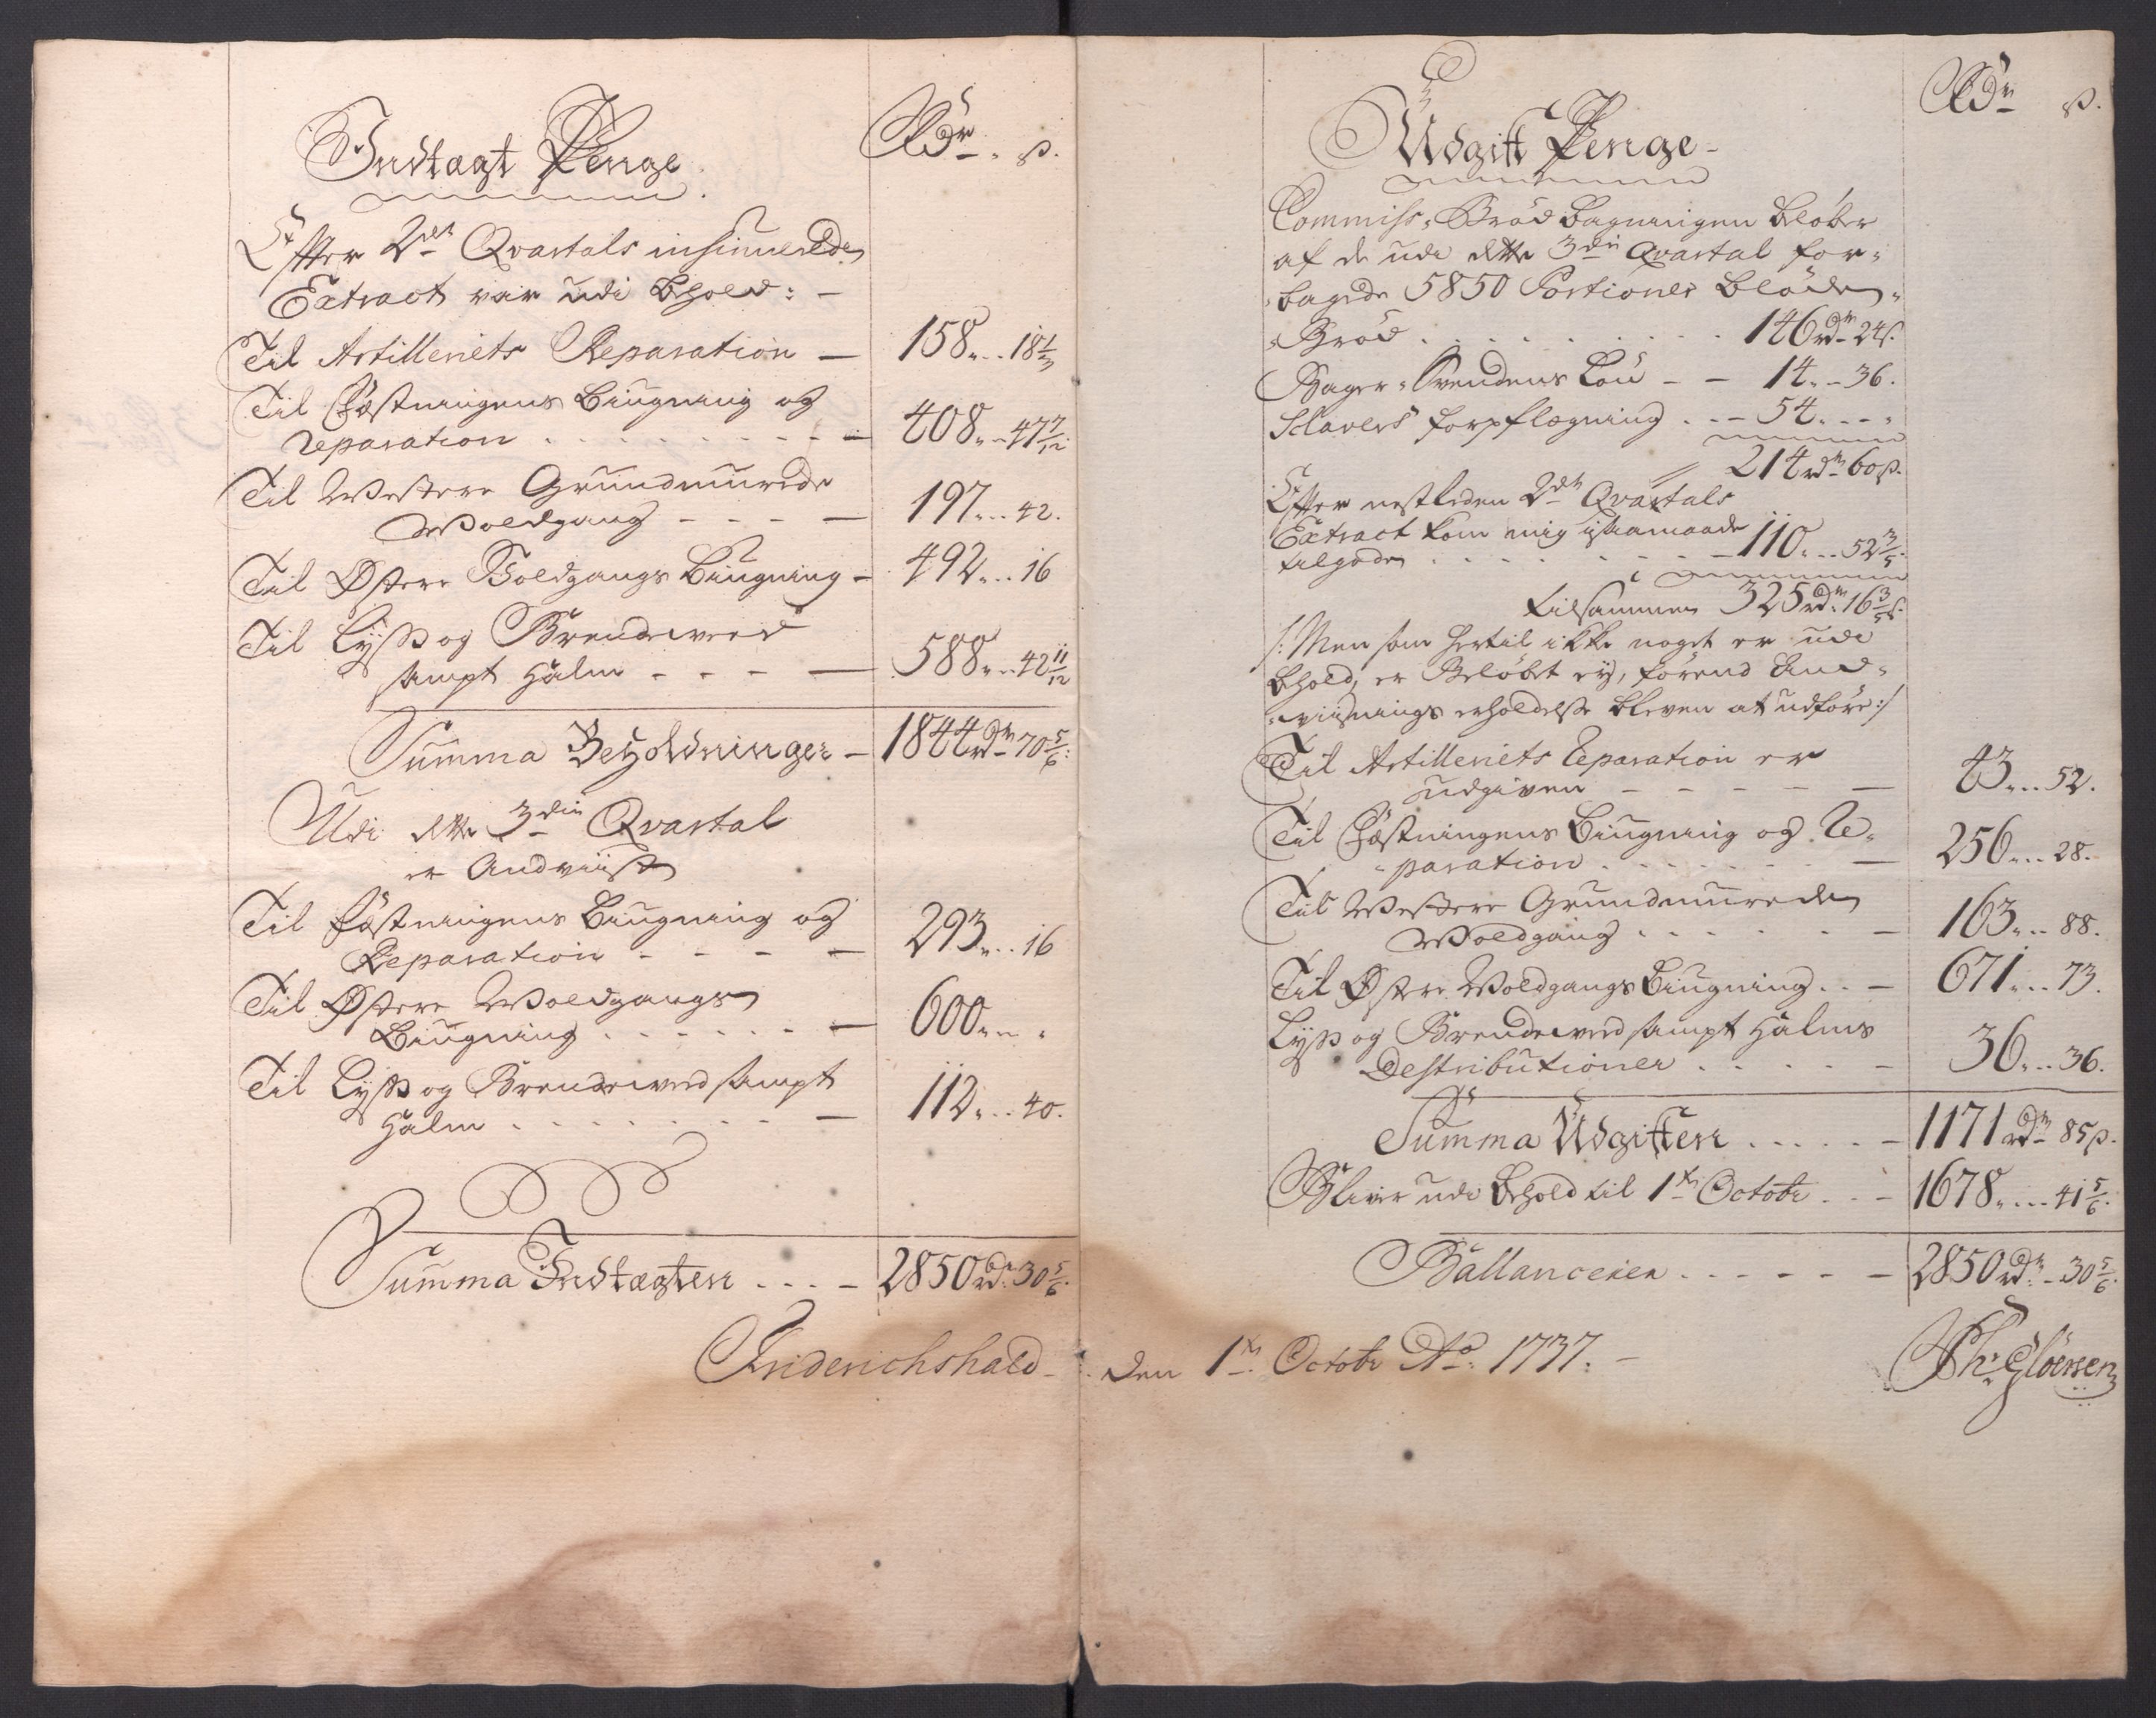 Indtægt Penge Rdr. s.
Efter 2den Qvartals insinuerede
Extract var udi behold: –
Til Artilleriets Reparation – 158 „ .. 18 1/3
Til Fæstningens Biugning og
reparation . . . . . . – 408 „ – 47 7/12
Til Westere Grundmurede
Woldgang - - - – 197 „ .. 42.
Til Østere Woldgangs Biugning – 492 „ .. 16
Til Lyss og Brendeweed
sampt Halm - - - – 588 „ .. 42 11/12
Summa Beholdninger – 1844 rdr 70 5/6:
Udi dette 3die Qvartal
er Andviist
Til Fæstningens Biugning og
Reparation - - - – 293 „ .. 16
Til Østere Woldgangs
Biugning . . . . . – 600 „ – „
Til Lyss og Brendeweed sampt
Halm . . . . . . – 112 „ .. 40.
Summa Indtægten . . . – 2850 rdr 30 5/6.
Udgift Penge – Rdr s.
Commiss: Brød bagningen beløber
af de udi dette 3die Qvartal for-
bagede 5850 Portioner bløde
Brød . . . . . . . 146 rdr 24 s.
Bager-Svendens Løn – – 14 „ – 36.
Slavers forpflegning . . – 54 „ – – „
214 rdr 60 s.
Efter nestleden 2den Qvartals
Extract kom mig i saamaade
tilgode . . . . . . – 110 „ .. 52 3/5.
tilsammen 325 rdr 16 3/5 s.
/: Men som hertil ikke noget er udi
behold, er Beløbet ey, førend And-
viisnings erholdelse bleven at udføre :/
Til Artilleriets Reparation er
udgiven – – – – – 43 „ .. 52.
Til Fæstningens Biugning og Re-
paration . . . . . – 256 „ .. 28.
Til Westere Grundmurede
Woldgang . . . . . – 163 „ .. 88.
Til Østre Woldgangs Biugning . . – 671 „ .. 73.
Lyss og Brendeweed sampt Halms
Destributioner . . . . – 36 „ .. 36.
Summa Udgiften . . . . – 1171 rdr 85 s.
Bliver udi Behold til 1te Octobr . . – 1678 „ ... 41 5/6.
Ballancerer . . – – – – 2850 rdr – 30 5/6.
Friderichshald – den 1te Octobr Ao: 1737. –